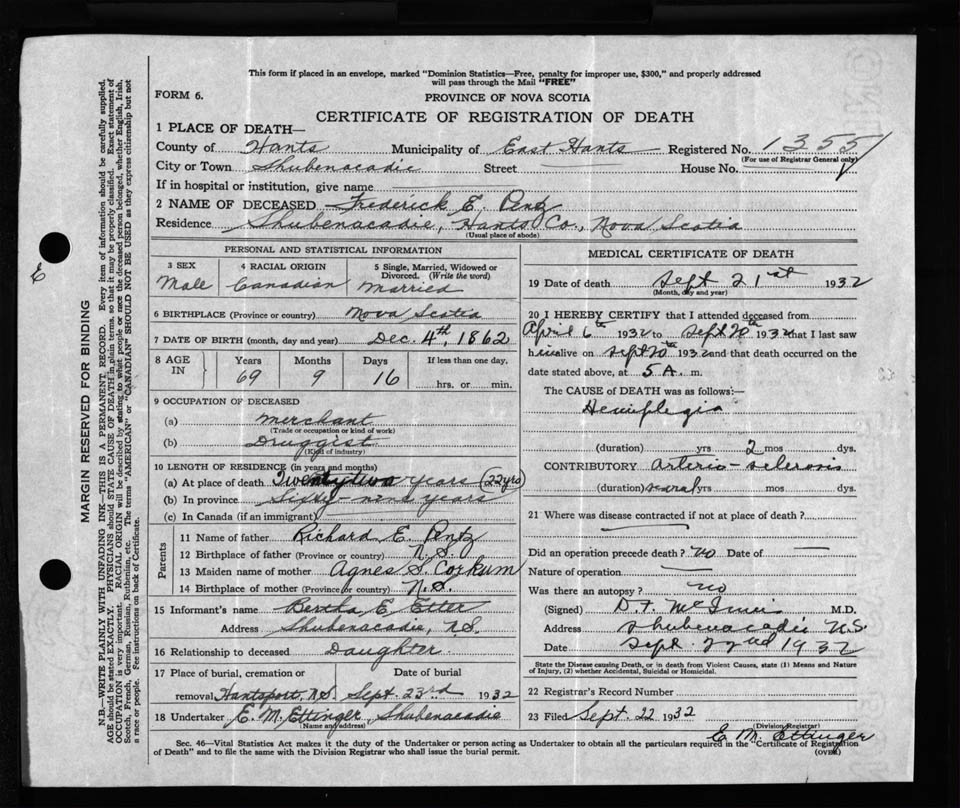 This form if placed in an envelope, marked "Dominion Statistics—Free, penalty for improper use, $300," and properly addressed
will pass through the Mail "FREE"
FORM 6.
PROVINCE OF NOVA SCOTIA
CERTIFICATE OF REGISTRATION OF DEATH
1 PLACE OF DEATH—
County of Hants Municipality of East Hants Registered No. 1355
(For use of Registrar General only)
City or Town Shubenacadie Street House No.
If in hospital or institution, give name
2 NAME OF DECEASED Frederick E. Pentz
Residence Shubenacadie, Hants Co., Nova Scotia
(Usual place of abode)
PERSONAL AND STATISTICAL INFORMATION
3 SEX 4 RACIAL ORIGIN 5 Single, Married, Widowed or
Divorced. (Write the word)
Male Canadian Married
6 BIRTHPLACE (Province or country) Nova Scotia
7 DATE OF BIRTH (month, day and year) Dec. 4th, 1862
8 AGE IN Years Months Days If less than one day,
69 9 16 hrs. or min.
9 OCCUPATION OF DECEASED
(a) Merchant
(Trade or occupation or kind of work)
(b) Druggist
(Kind of industry)
10 LENGTH OF RESIDENCE (in years and months)
(a) At place of death Twenty two years (22 yrs)
(b) In province Sixty-nine years
(c) In Canada (if an immigrant)
Parents
11 Name of father Richard E. Pentz
12 Birthplace of father (Province or country) N.S.
13 Maiden name of mother Agnes S. Corkum
14 Birthplace of mother (Province or country) N.S.
15 Informant's name Bertha E. Etter
Address Shubenacadie, N.S.
16 Relationship to deceased Daughter
17 Place of burial, cremation or Date of burial
removal Hantsport, N.S. Sept. 23rd 1932
18 Undertaker E. M. Ettinger, Shubenacadie
(Name and address)
MEDICAL CERTIFICATE OF DEATH
19 Date of death Sept 21st 1932
(Month, day and year)
20 I HEREBY CERTIFY that I attended deceased from
April 6th 1932 to Sept 20th 1932 that I last saw
him alive on Sept 20th 1932 and that death occurred on the
date stated above, at 5 A. m.
The CAUSE of DEATH was as follows:—
Hemiplegia
(duration) yrs 2 mos dys.
CONTRIBUTORY arterio-sclerosis
(duration) several yrs mos. dys.
21 Where was disease contracted if not at place of death?
Did an operation precede death? no Date of —
Nature of operation —
Was there an autopsy? no
(Signed) D. F. M.D.
Address Shubenacadie N.S.
Date Sept. 22nd 1932
State the Disease causing Death, or in death from Violent Causes, state (1) Means and Nature
of Injury, (2) whether Accidental, Suicidal or Homicidal.
22 Registrar's Record Number
23 Files Sept. 22 1932
(Division Registrar)
E. M. Ettinger
Sec. 46—Vital Statistics Act makes it the duty of the Undertaker or person acting as Undertaker to obtain all the particulars required in the "Certificate of Registration
of Death" and to file the same with the Division Registrar who shall issue the burial permit. (OVER)
MARGIN RESERVED FOR BINDING
N.B.—WRITE PLAINLY WITH UNFADING INK—THIS IS A PERMANENT RECORD. Every item of information should be carefully supplied.
AGE should be stated EXACTLY. PHYSICIANS should STATE CAUSE OF DEATH in plain terms, so that it may be properly classified. Exact statement of
OCCUPATION is very important. RACIAL ORIGIN will be described by stating to what people or race the deceased person belonged, whether English, Irish,
Scotch, French, German, Russian, Ruthenian, etc. The terms "AMERICAN" or "CANADIAN" SHOULD NOT BE USED as they express citizenship but not
a race or people. Fee instructions on back of Certificate.
E